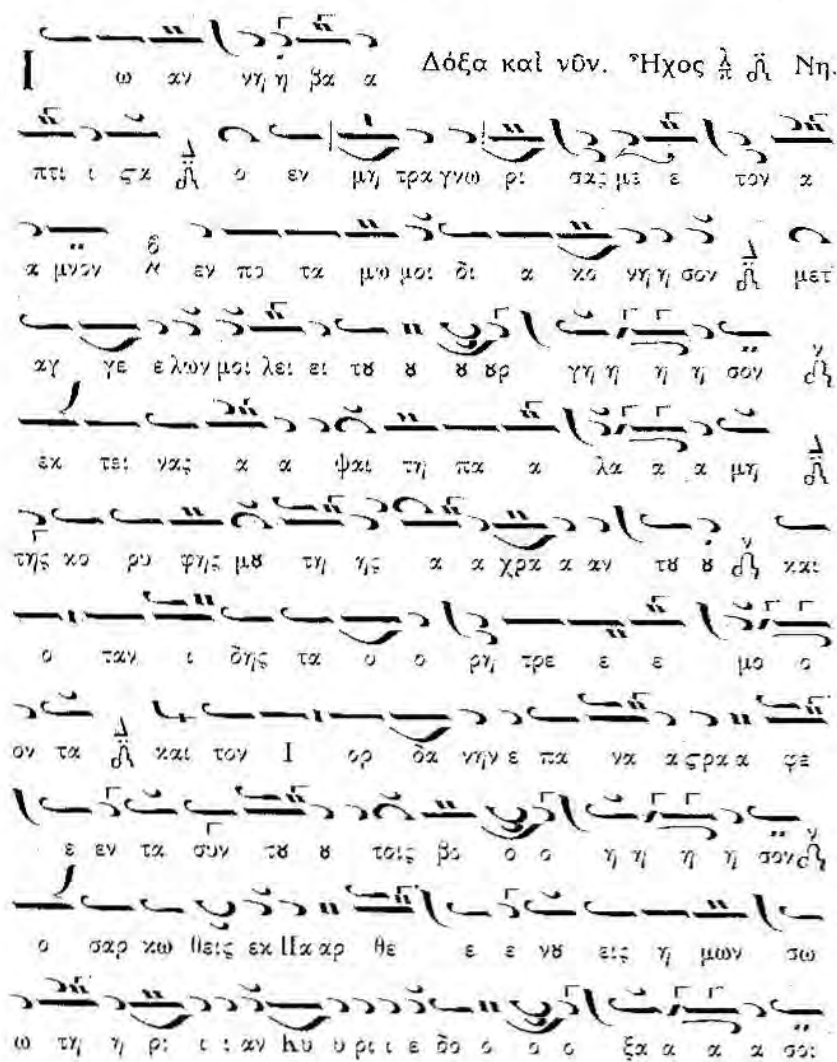 Δόξα καὶ νῦν. Ἦχος λ π δ Νη.
Ι ω αν νη η βα α
πτι ι ϛα ο εν μη τρα γνω ρι σας με ε τον α
α μνον εν πο τα μω μοι δι α κο νη η σον μετ
αγ γε ε λων μοι λει ει τȣ ȣ ȣ ȣρ γη η η η σον
εκ τει νας α α ψαι τη πα α λα α α μη
της κο ρυ φης μȣ τη ης α α χρα α αν τȣ ȣ και
ο παν ι δης τα ο ο ρη τρε ε ε μο ο
ον τα και τον Ι ορ δα νην ε πα να α ϛρα α φε
ε εν τα συν τȣ ȣ τοις βο ο ο η η η η σον
ο σαρ κω θεις εκ Πα αρ θε ε ε νȣ εις η μων σω
ω τη η ρι ι αν Κυ υ ρι ι ε δο ο ο ο ξα α α α σοι